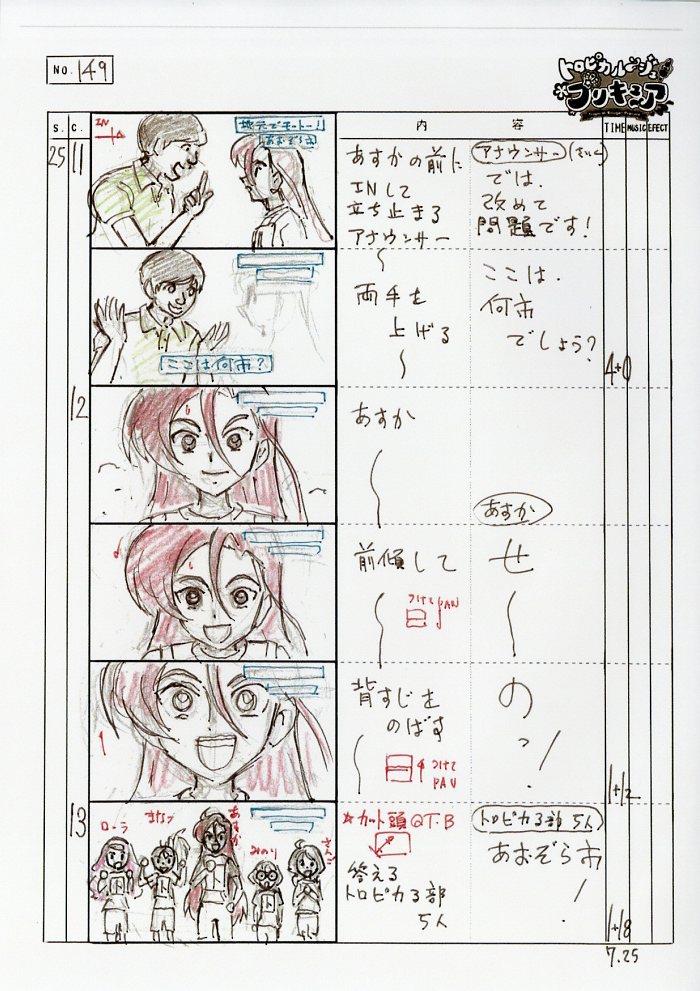 NO. 149
トロピカル～ジュ
プリキュア
S. C. 内 容 TIME MUSIC EFECT
25 11
IN
地元でモットー!
あおぞら市
あすかの前に
INして
立ち止まる
アナウンサー
アナウンサー
では、
改めて
問題です!
ここは何市?
両手を
上げる
ここは、
何市
でしょう?
4+0
12
あすか
あすか
前傾して
つけてPAN
せ
〜
背すじを
のばす
つけて
PAN
の
っ!
1+12
13
ローラ
まなつ
あすか
みのり
さんご
☆カット頭Q.T.B
答える
トロピカる部
5人
トロピカる部 5人
あおぞら市!
1+18
7.25